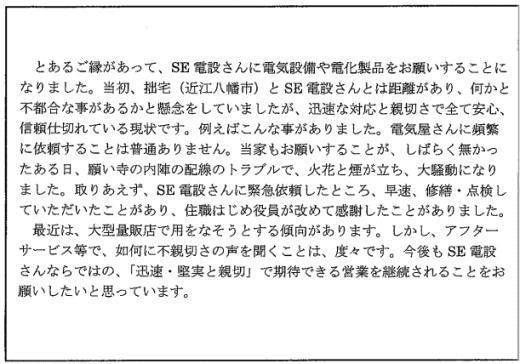 とあるご縁があって、SE 電設さんに電気設備や電化製品をお願いすることに
なりました。当初、拙宅（近江八幡市）と SE 電設さんとは距離があり、何かと
不都合な事があるかと懸念をしていましたが、迅速な対応と親切さで全て安心、
信頼仕切れている現状です。例えばこんな事がありました。電気屋さんに頻繁
に依頼することは普通ありません。当家もお願いすることが、しばらく無かっ
たある日、願い寺の内陣の配線のトラブルで、火花と煙が立ち、大騒動になり
ました。取りあえず、SE 電設さんに緊急依頼したところ、早速、修繕・点検し
ていただいたことがあり、住職はじめ役員が改めて感謝したことがありました。
最近は、大型量販店で用をなそうとする傾向があります。しかし、アフター
サービス等で、如何に不親切さの声を聞くことは、度々です。今後も SE 電設
さんならではの、「迅速・堅実と親切」で期待できる営業を継続されることをお
願いしたいと思っています。